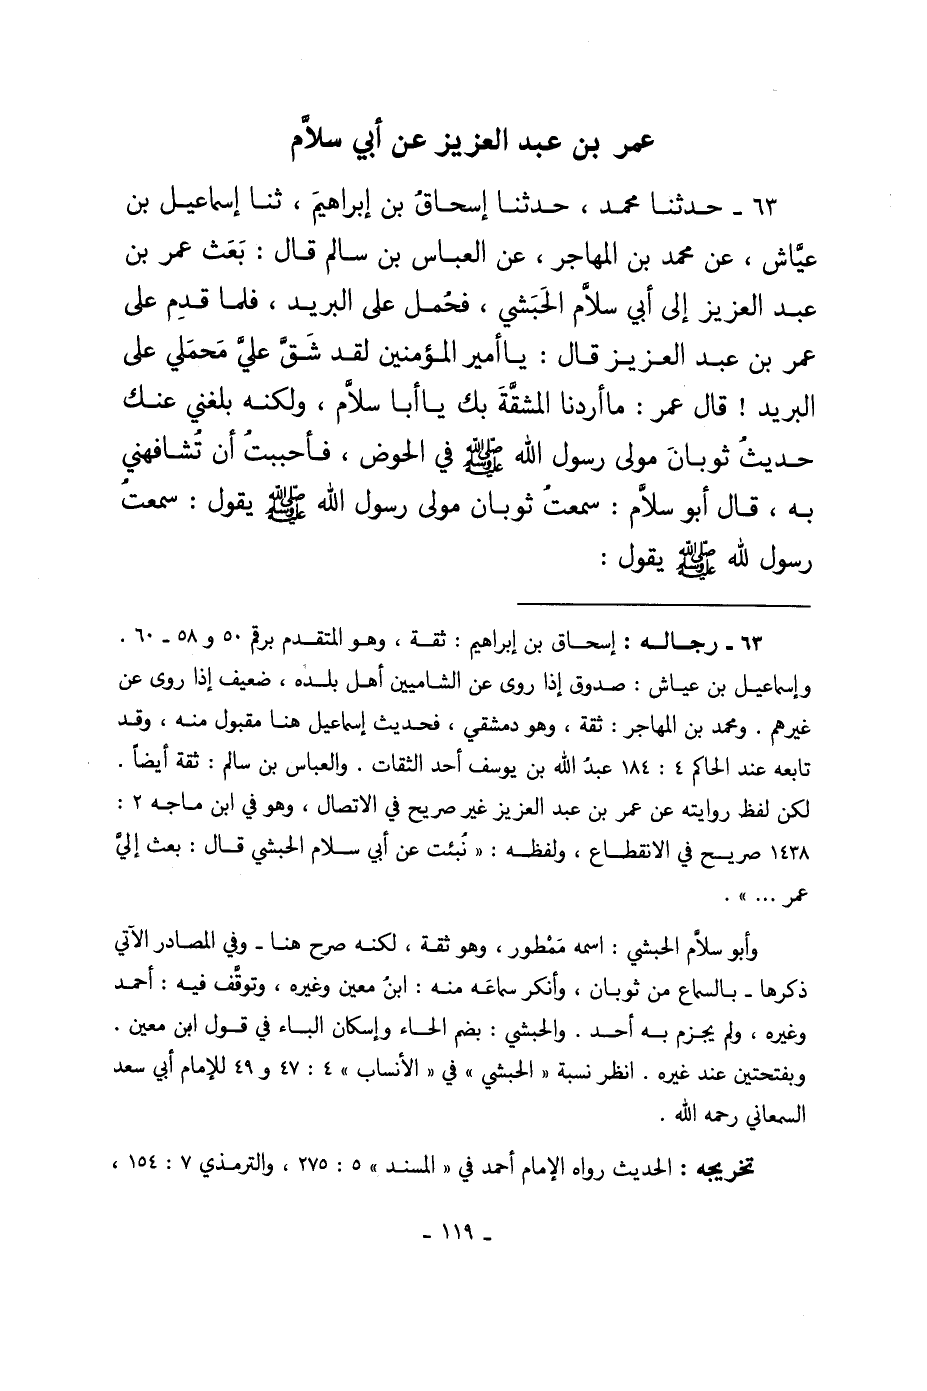 عمر بن عبد العزيز عن أبي سلاَّم
٦٣ ـ حدثنا محمد ، حدثنا إسحاقُ بن إبراهيمَ ، ثنا إسماعيل بن
عيَّاش ، عن محمد بن المهاجر ، عن العباس بن سالم قال : بَعَث عمر بن
عبد العزيز إلى أبي سلاَّم الحَبَشي ، فحُمل على البريد ، فلما قدِم على
عمر بن عبد العزيز قال : ياأمير المؤمنين لقد شَقَّ عليَّ مَحمَلي على
البريد ! قال عمر : ماأردنا المشقَّةَ بك ياأبا سلاَّم ، ولكنه بلغني عنك
حديثُ ثوبانَ مولى رسول الله ﷺ في الحوض ، فأحببتُ أن تُشافهني
به ، قال أبو سلاَّم : سمعتُ ثوبان مولى رسول الله ﷺ يقول : سمعتُ
رسول لله ﷺ يقول :
٦٣ ـ رجاله : إسحاق بن إبراهيم : ثقة ، وهو المتقدم برقم ٥٠ و ٥٨ ـ ٦٠ .
وإسماعيل بن عياش : صدوق إذا روى عن الشاميين أهل بلده ، ضعيف إذا روى عن
غيرهم . ومحمد بن المهاجر : ثقة ، وهو دمشقي ، فحديث إسماعيل هنا مقبول منه ، وقد
تابعه عند الحاكم ٤ : ١٨٤ عبدُ الله بن يوسف أحد الثقات . والعباس بن سالم : ثقة أيضاً .
لكن لفظ روايته عن عمر بن عبد العزيز غير صريح في الاتصال ، وهو في ابن ماجه ٢ :
١٤٣٨ صريح في الانقطاع ، ولفظه : « نُبئت عن أبي سلام الحبشي قال : بعث إليَّ
عمر ... » .
وأبو سلاَّم الحبشي : اسمه مَمْطور ، وهو ثقة ، لكنه صرح هنا ـ وفي المصادر الآتي
ذكرها ـ بالسماع من ثوبان ، وأنكر سماعَه منه : ابنُ معين وغيره ، وتوقَّف فيه : أحمد
وغيره ، ولم يجزم به أحد . والحبشي : بضم الحاء وإسكان الباء في قول ابن معين .
وبفتحتين عند غيره . انظر نسبة « الحبشي » في « الأنساب » ٤ : ٤٧ و ٤٩ للإمام أبي سعد
السمعاني رحمه الله .
تخريجه : الحديث رواه الإمام أحمد في « المسند » ٥ : ٢٧٥ ، والترمذي ٧ : ١٥٤ ،
ـ ١١٩ ـ